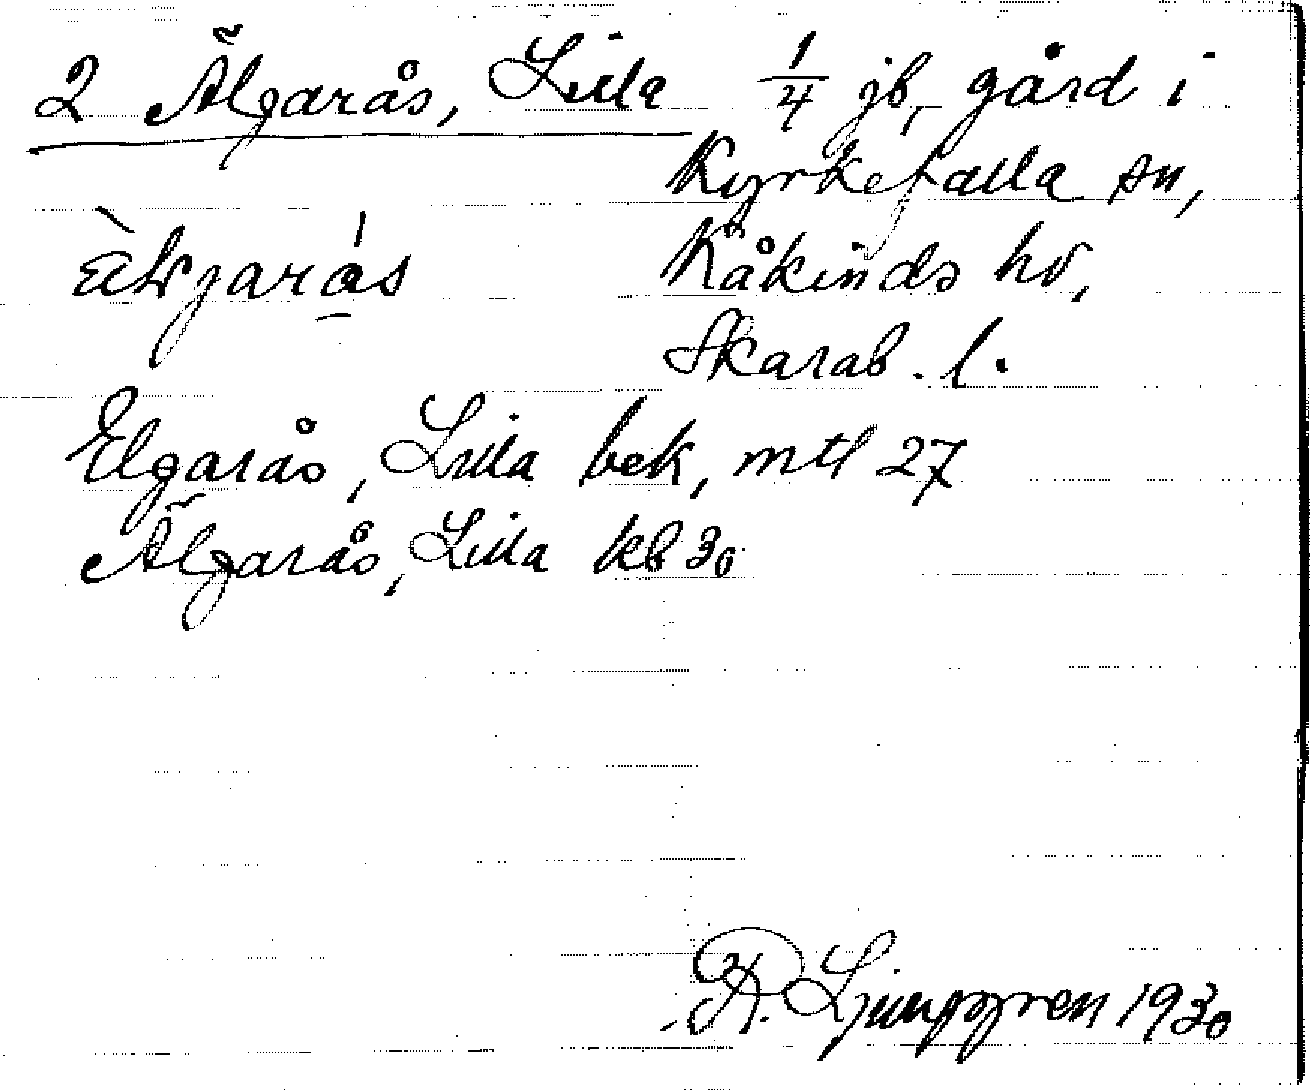 2 Älgarås, Lilla 1/4 jb, gård i
Kyrkefalla sn,
Kåkinds hd,
Skarab. l.
Elgarås, Lilla bek, mtl 27
Älgarås, Lilla kb 30
R. Ljunggren 1930